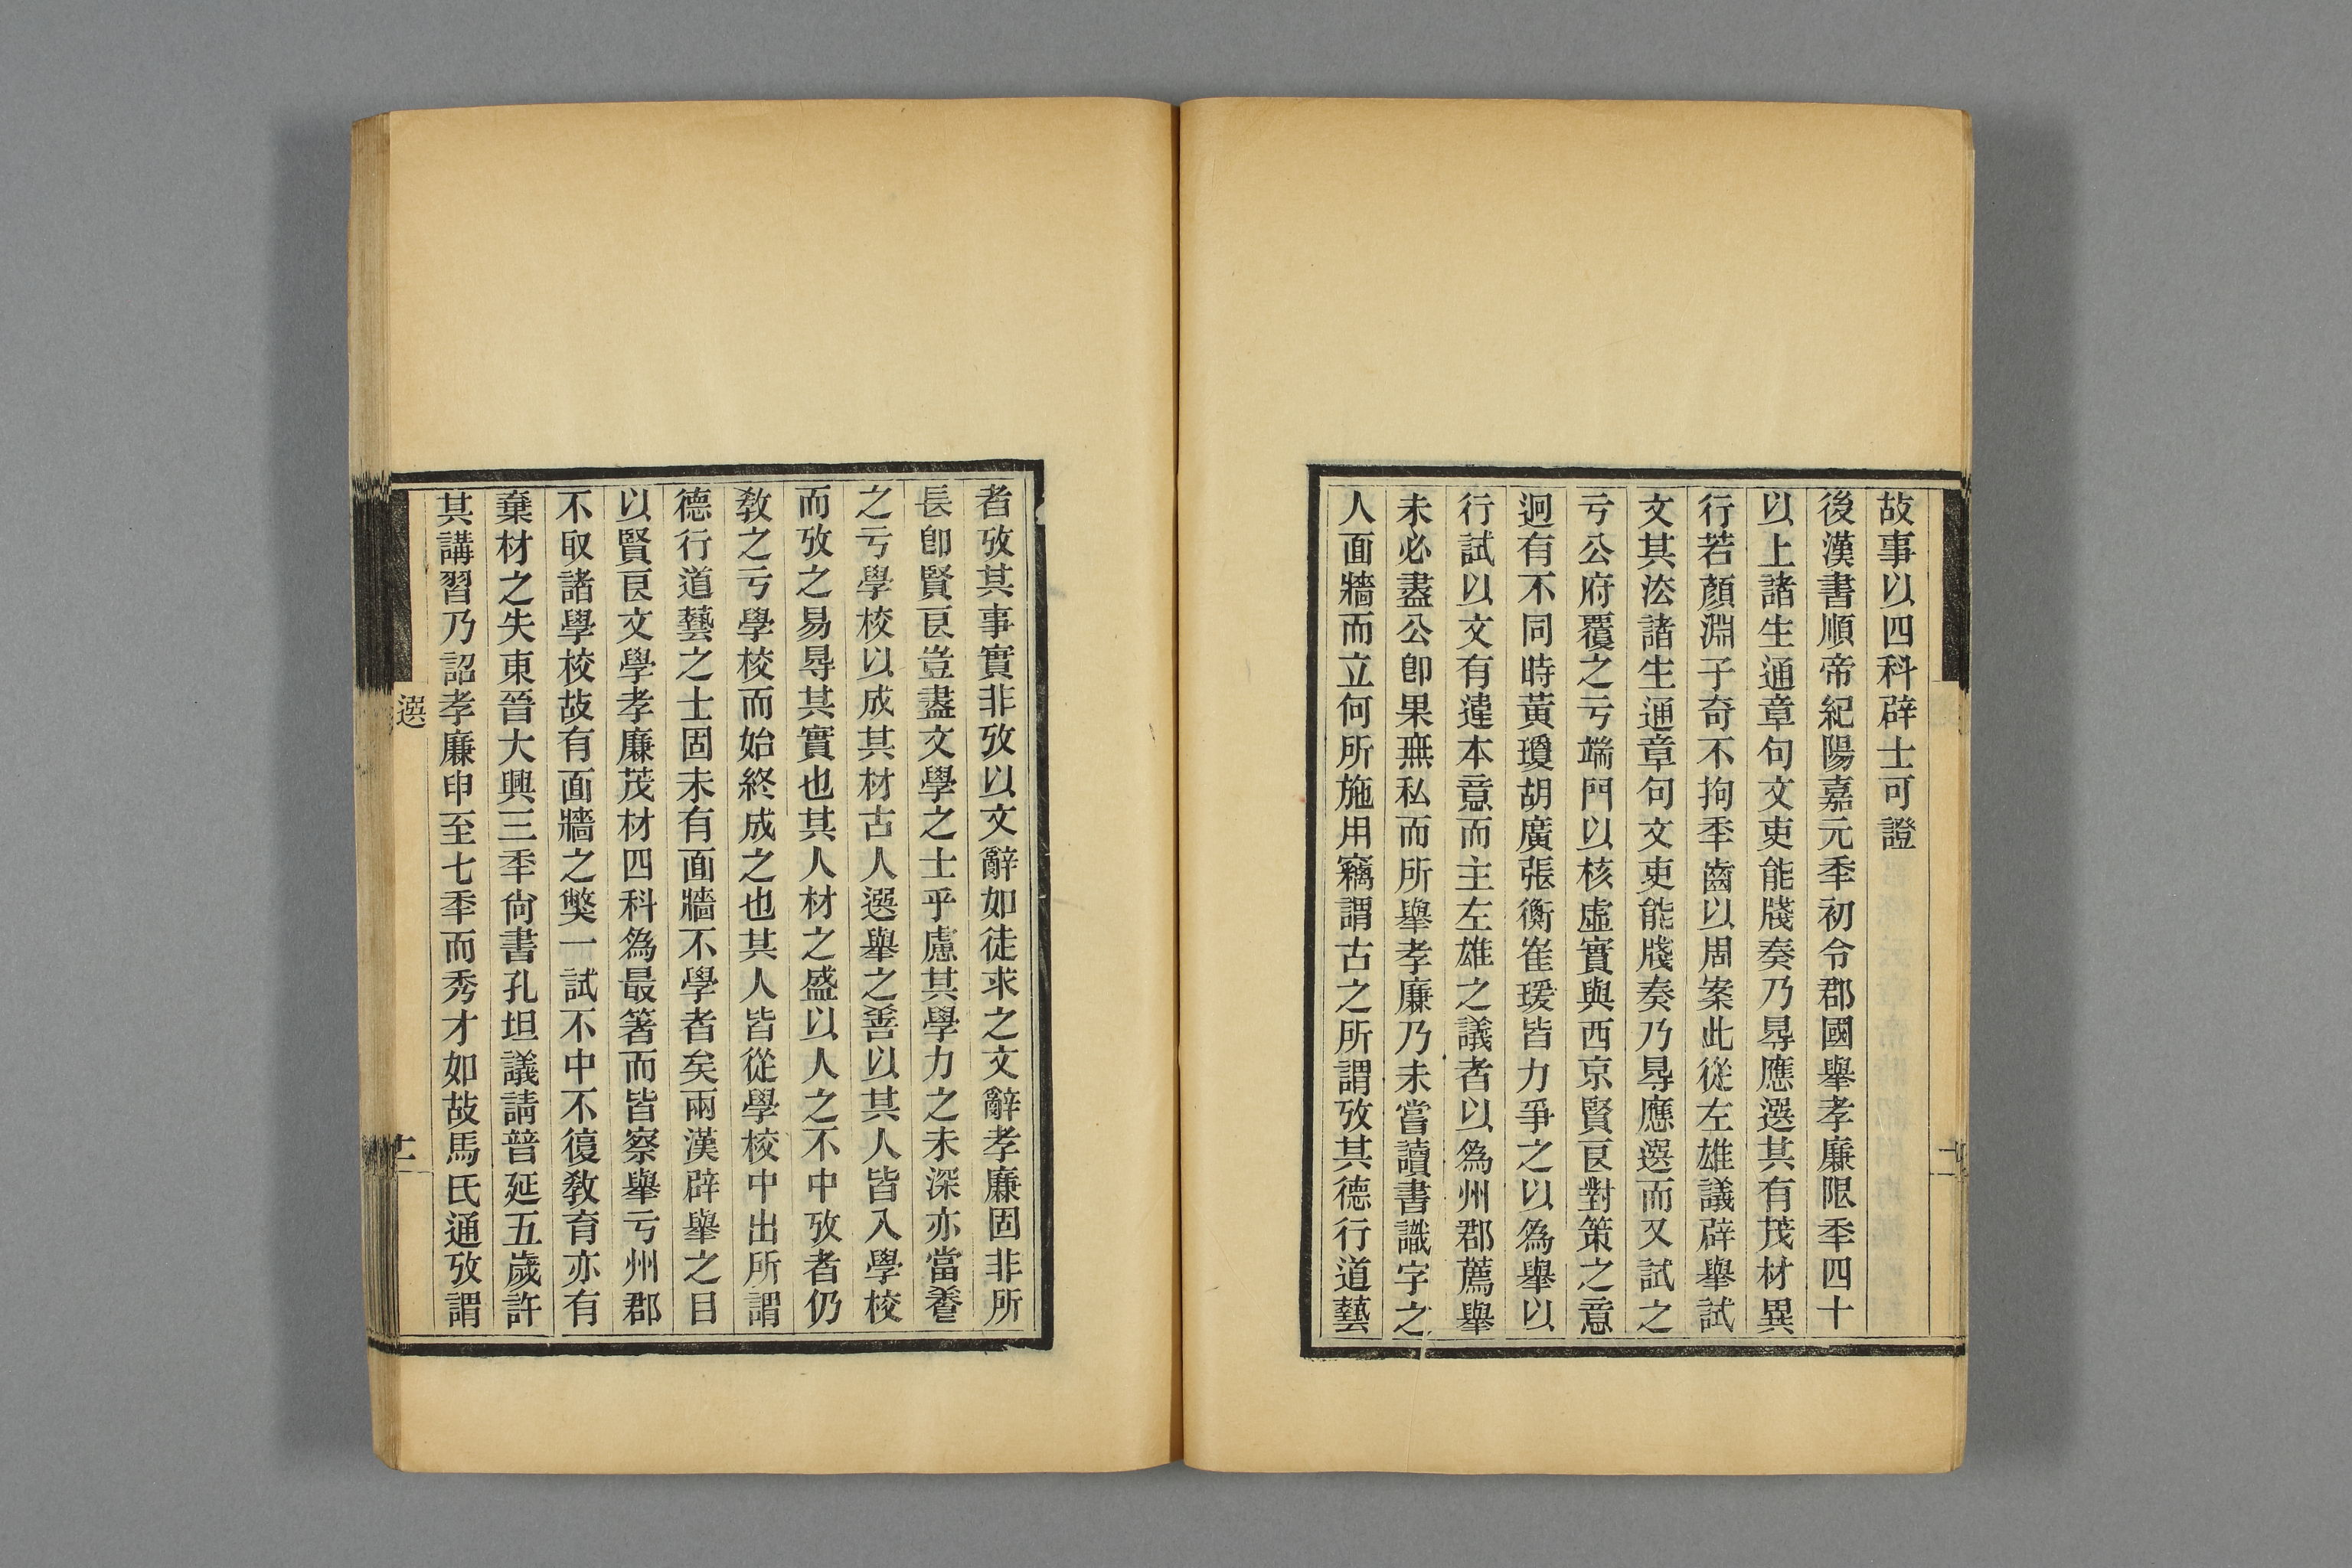 故事以四科辟士可證
後漢書順帝紀陽嘉元秊初令郡國舉孝廉限秊四十
以上諸生通章句文吏能牋奏乃㝵應選其有茂材異
行若顏淵子奇不拘秊齒以周案此從左雄議辟舉試
文其㳒諸生通章句文吏能牋奏乃㝵應選而又試之
亏公府覆之亏端門以核虛實與西京賢㫐對策之意
迥有不同時黃瓊胡廣張衡崔瑗皆力爭之以爲舉以
行試以文有違本意而主左雄之議者以爲州郡薦舉
未必盡公卽果無私而所舉孝廉乃未嘗讀書識字之
人面牆而立何所施用竊謂古之所謂攷其德行道藝
者攷其事實非攷以文辭如徒求之文辭孝廉固非所
長卽賢㫐豈盡文學之士乎慮其學力之未深亦當養
之亏學校以成其材古人選舉之善以其人皆入學校
而攷之易㝵其實也其人材之盛以人之不中攷者仍
敎之亏學校而始終成之也其人皆從學校中出所謂
德行道藝之士固未有面牆不學者矣兩漢辟舉之目
以賢㫐文學孝廉茂材四科爲最箸而皆察舉亏州郡
不取諸學校故有面牆之獘一試不中不復敎育亦有
棄材之失東晉大興三秊尙書孔坦議請普延五歲許
其講習乃詔孝廉申至七秊而秀才如故馬氏通攷謂
選